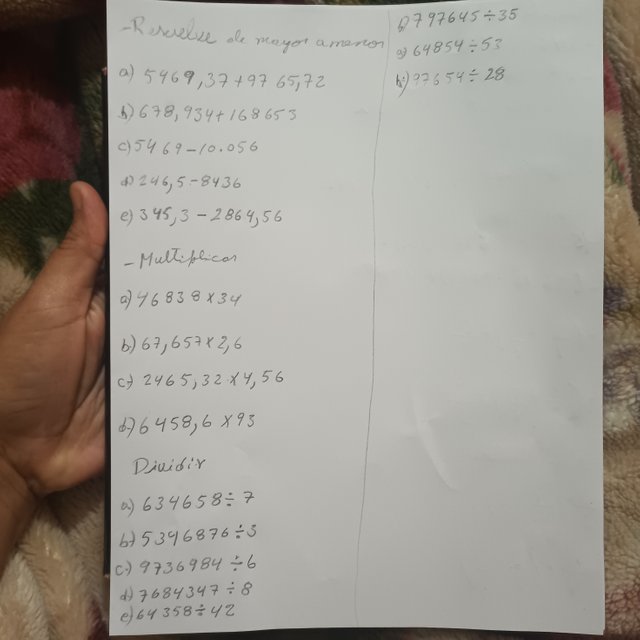 - Resuelve de mayor a menor
a) 5469,37+9765,72
b) 678,934+168653
c) 5469-10.056
d) 246,5-8436
e) 345,3-2864,56
- Multiplicar
a) 46838x34
b) 67,657x2,6
c) 2465,32x4,56
d) 6458,6x93
Dividir
a) 634658÷7
b) 5346876÷3
c) 9736984÷6
d) 7684347÷8
e) 64358÷42
f) 797645÷35
g) 64854÷53
h) 97654÷28